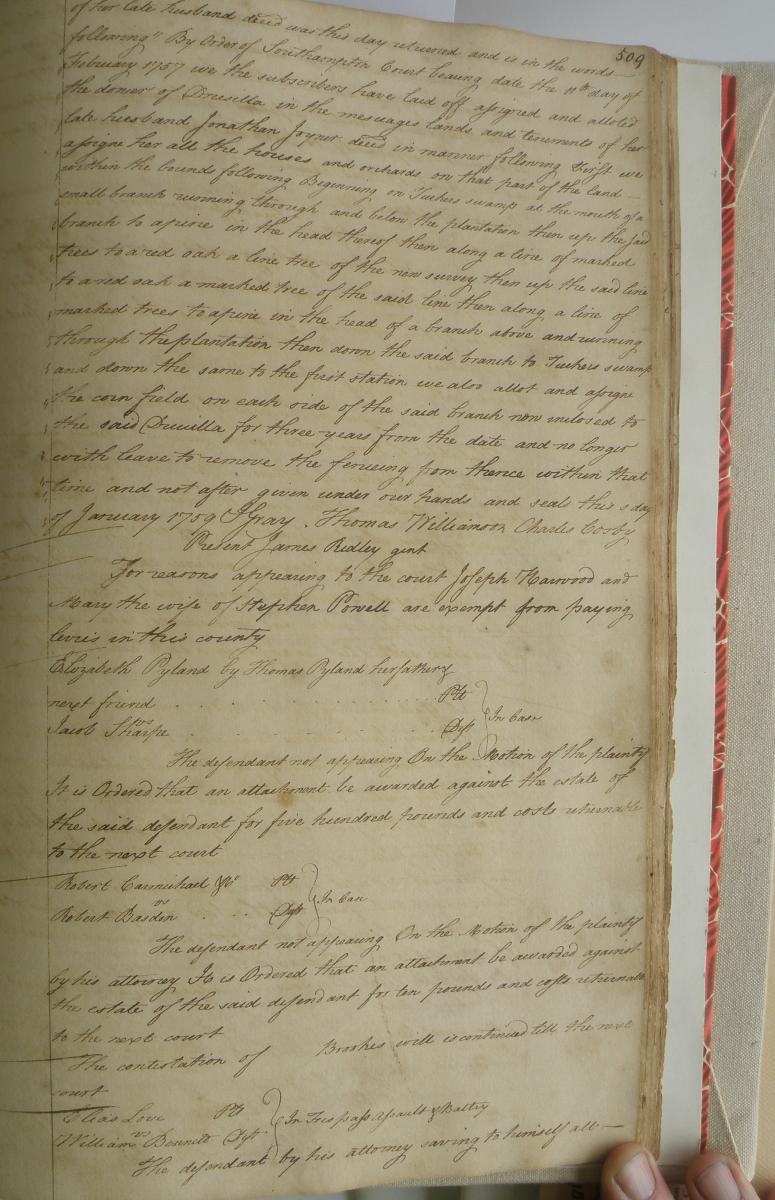 509
of her late husband decd was this day returned and is in the words
following" By Order of Southampton Court bearing date the 11th day of
February 1757 we the subscribers have laid off assigned and alloted
the dower of Drusilla in the messuages lands and tenements of her
late husband Jonathan Joyner decd in manner following First we
assigne her all the houses and orchards on that part of the land
within the bounds following Beginning on Tuckers swamp at the mouth of a
small branch running through and below the plantation then up the said
branch to a pine in the head thereof then along a line of marked
trees to a red oak a line tree of the new survey then up the said line
to a red oak a marked tree of the said line then along a line of
marked trees to a pine in the head of a branch above and running
through the plantation then down the said branch to Tuckers swamp
and down the same to the first station we also allot and assigne
the corn field on each side of the said branch now inclosed to
the said Drusilla for three years from the date and no longer
with leave to remove the fenceing from thence within that
time and not after given under our hands and seals this day
of January 1759 JGray . Thomas Williamson Charles Cosby
Present James Ridley gent
For reasons appearing to the court Joseph Harwood and
Mary the wife of Stephen Powell are exempt from paying
levies in this county
Elizabeth Pyland by Thomas Pyland her father &
next friend . . . . Plt
vs } In Case
Jacob Sharpe . . . . Deft
The defendant not appearing On the Motion of the plaintif
It is Ordered that an attachment be awarded against the estate of
the said defendant for five hundred pounds and costs returnable
to the next court
Robert Carmichael & Co Plt
vs } In Case
Robert Basden . . . Deft
The defendant not appearing On the Motion of the plaintif
by his attorney It is Ordered that an attachment be awarded against
the estate of the said defendant for ten pounds and costs returnable
to the next court
The contestation of Brookes will is continued till the next
court
Elias Love Plt
vs } In Trespass Assault & Battry
William Bennett Deft
The defendant by his attorney saving to himself all